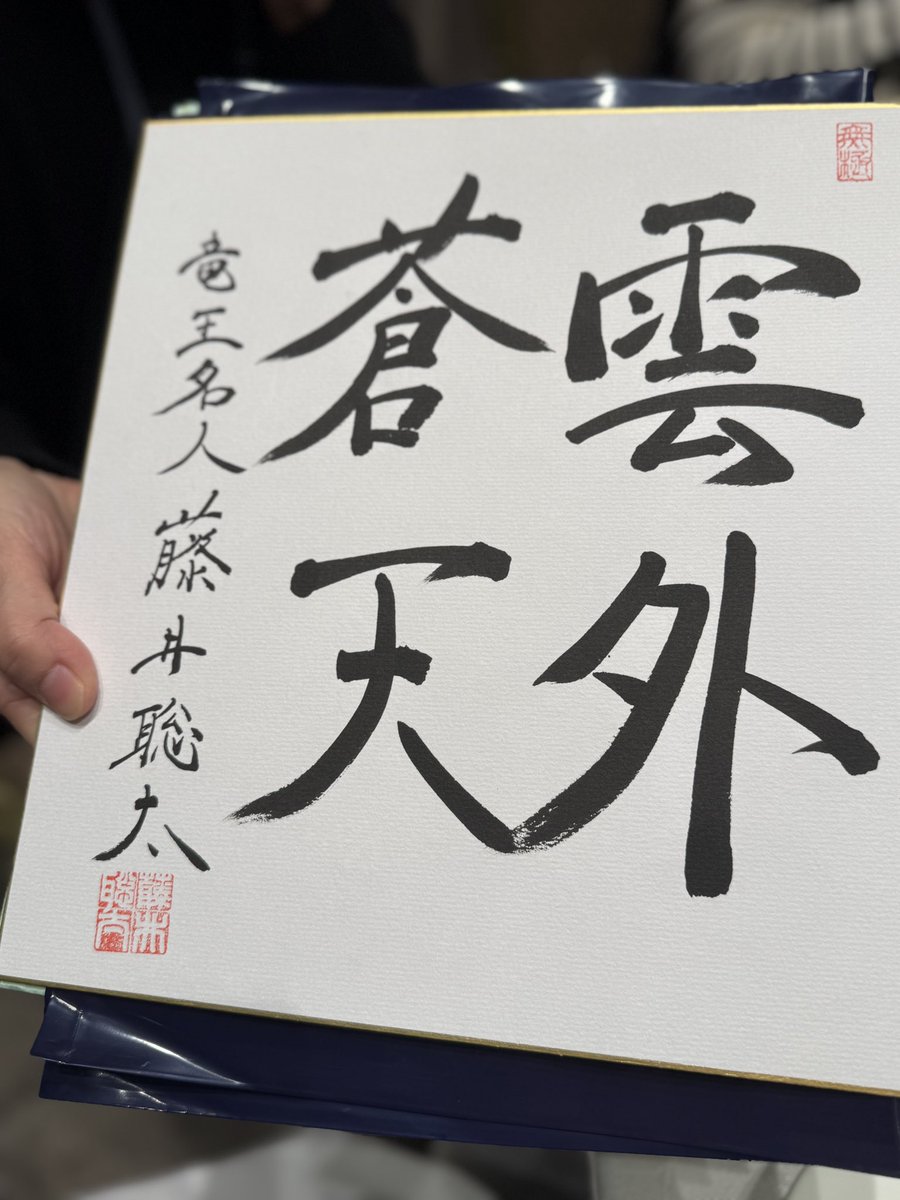 無極
雲外
蒼天
竜王名人 藤井聡太
藤井聡太